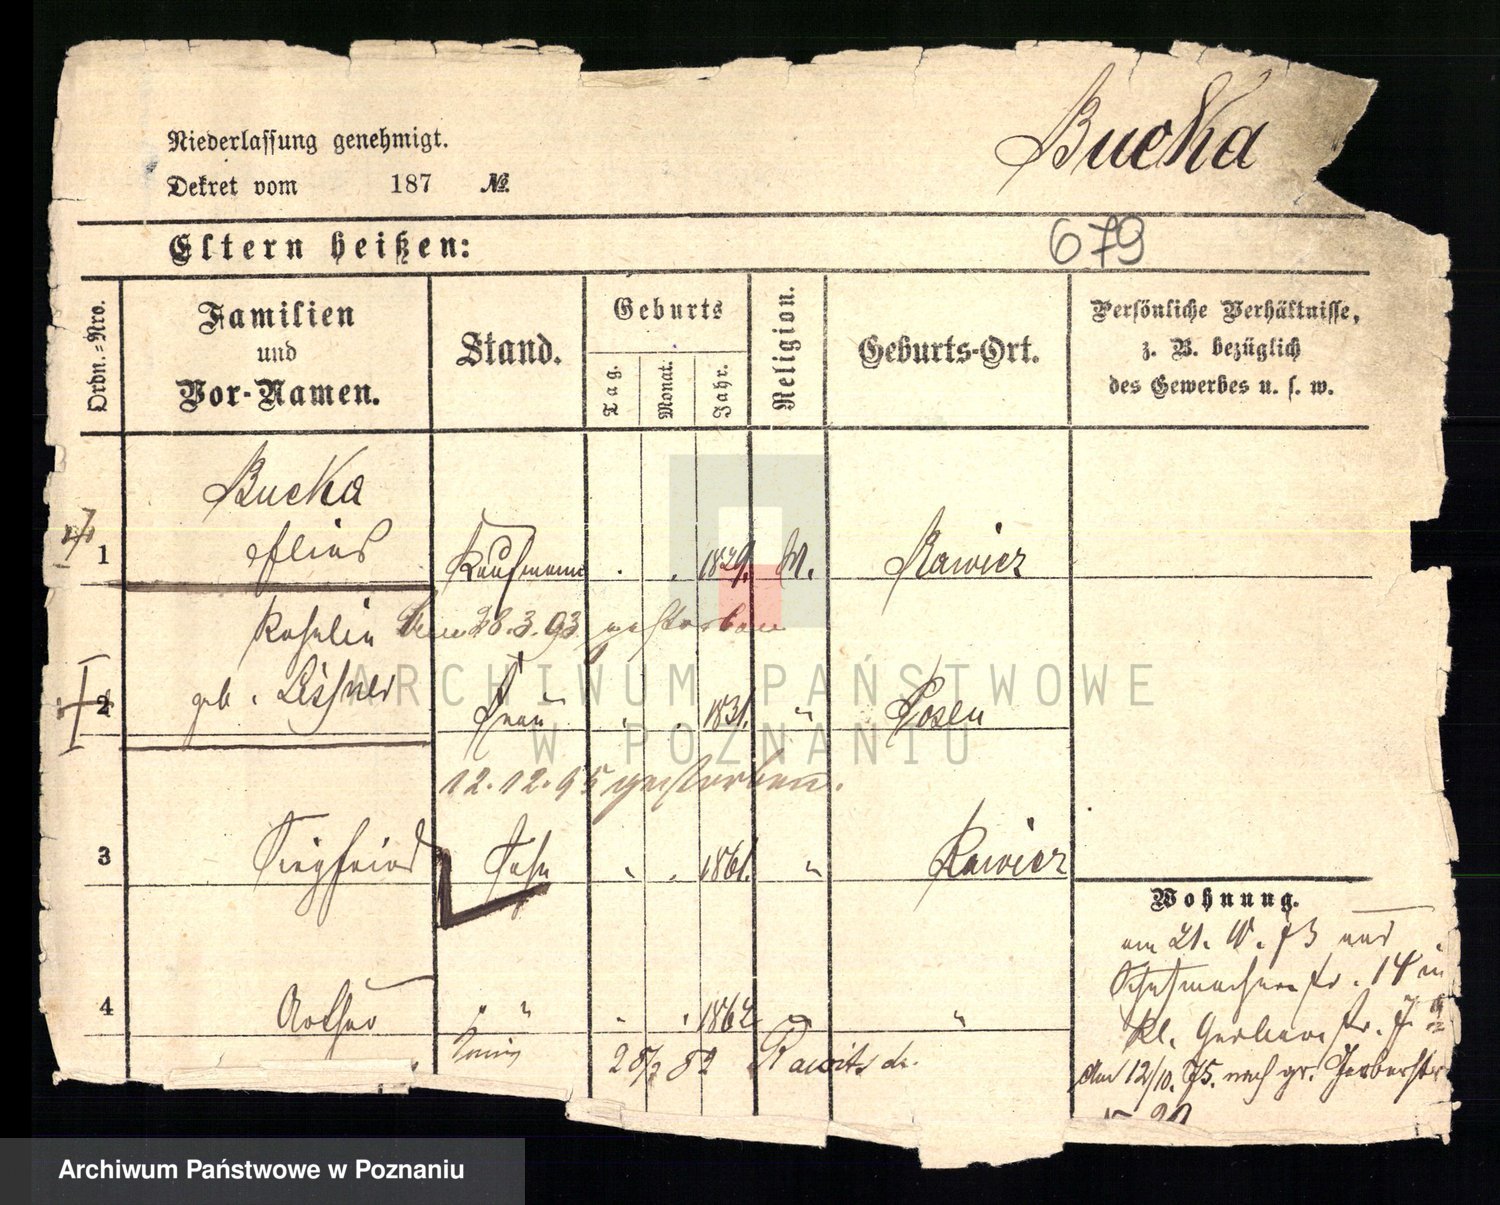 Bucka
Niederlassung genehmigt.
Dekret vom 187 №
Eltern heißen:
679
Ordn.-Nro.
Familien
und
Vor-Namen.
Stand.
Geburts
Tag.
Monat.
Jahr.
Religion.
Geburts-Ort.
Persönliche Verhältnisse,
z. B. bezüglich
des Gewerbes u. s. w.
Bucka
1 Elias Kaufmann . . 1829. M. Rawicz
Rosalie 28.3.93 gestorben
geb. Lissner
2 Frau . . 1831. " Posen
12.12.95 gestorben.
3 Siegfried Sohn " . 1861. " Rawicz
4 Arthur " " " . 1862 " "
28/2 82 Rawitsch.
Wohnung.
am 21. 10. 73 aus
Schuhmacherstr. 14 in
kl. Gerberstr. 7
den 12/10. 75. nach gr. Gerberstr
20
ARCHIWUM PAŃSTWOWE
W POZNANIU
Archiwum Państwowe w Poznaniu